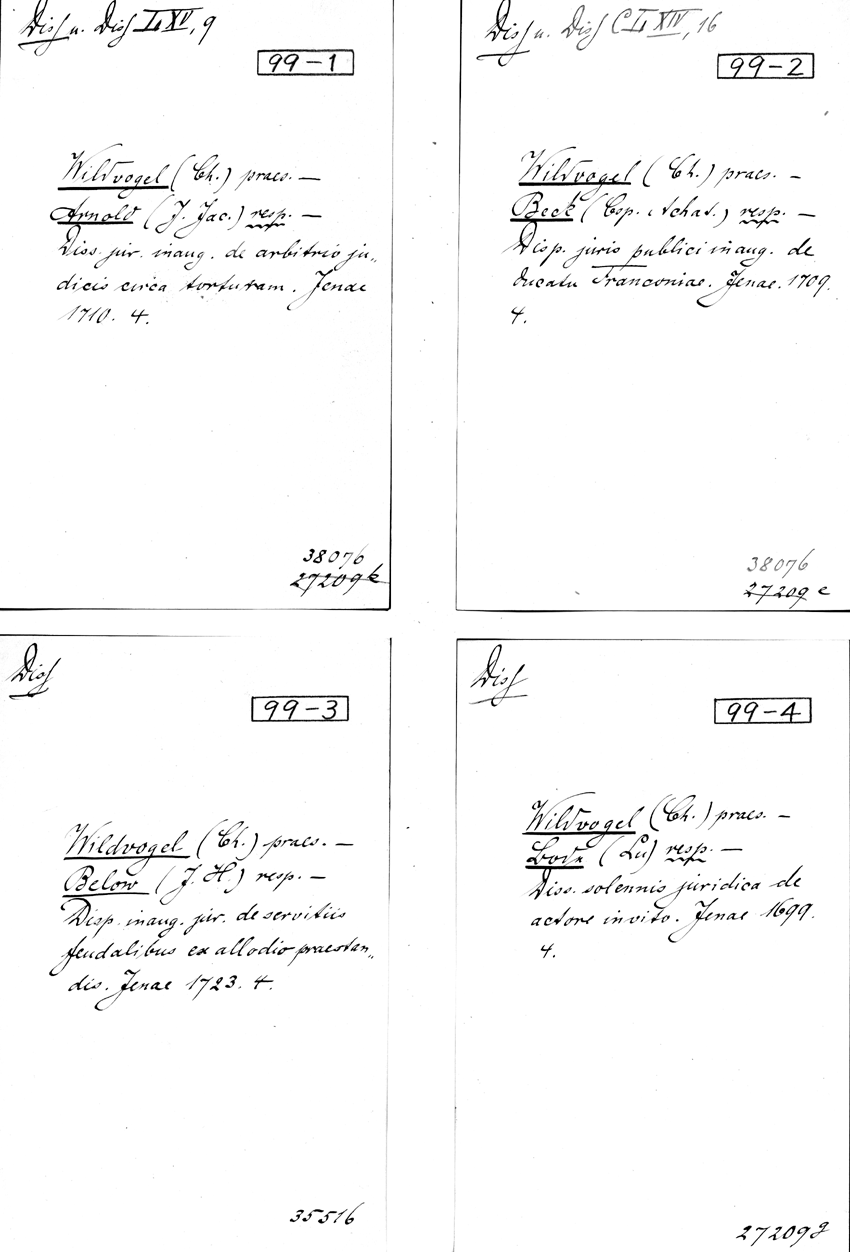 Diss u. Diss LXV, 9
99-1
Wildvogel (Ch.) praes. —
Arnold (J. Jac.) resp. —
Diss. jur. inaug. de arbitrio ju„
dicis circa torturam. Jenae
1710. 4.
38076
27209
Diss u. Diss CLXIV, 16
99-2
Wildvogel (Ch.) praes. —
Beck (Csp. Achat.) resp. —
Disp. juris publici inaug. de
ducatu Franconiae. Jenae. 1709.
4.
38076
27209 e
Diss
99-3
Wildvogel (Ch.) praes. —
Below (J. H.) resp. —
Disp. inaug. jur. de servitiis
feudalibus ex allodio praestan„
dis. Jenae 1723. 4.
35516
Diss
99-4
Wildvogel (Ch.) praes. —
Bode (Lu) resp. —
Diss. solennis juridica de
actore invito. Jenae 1699.
4.
27209g